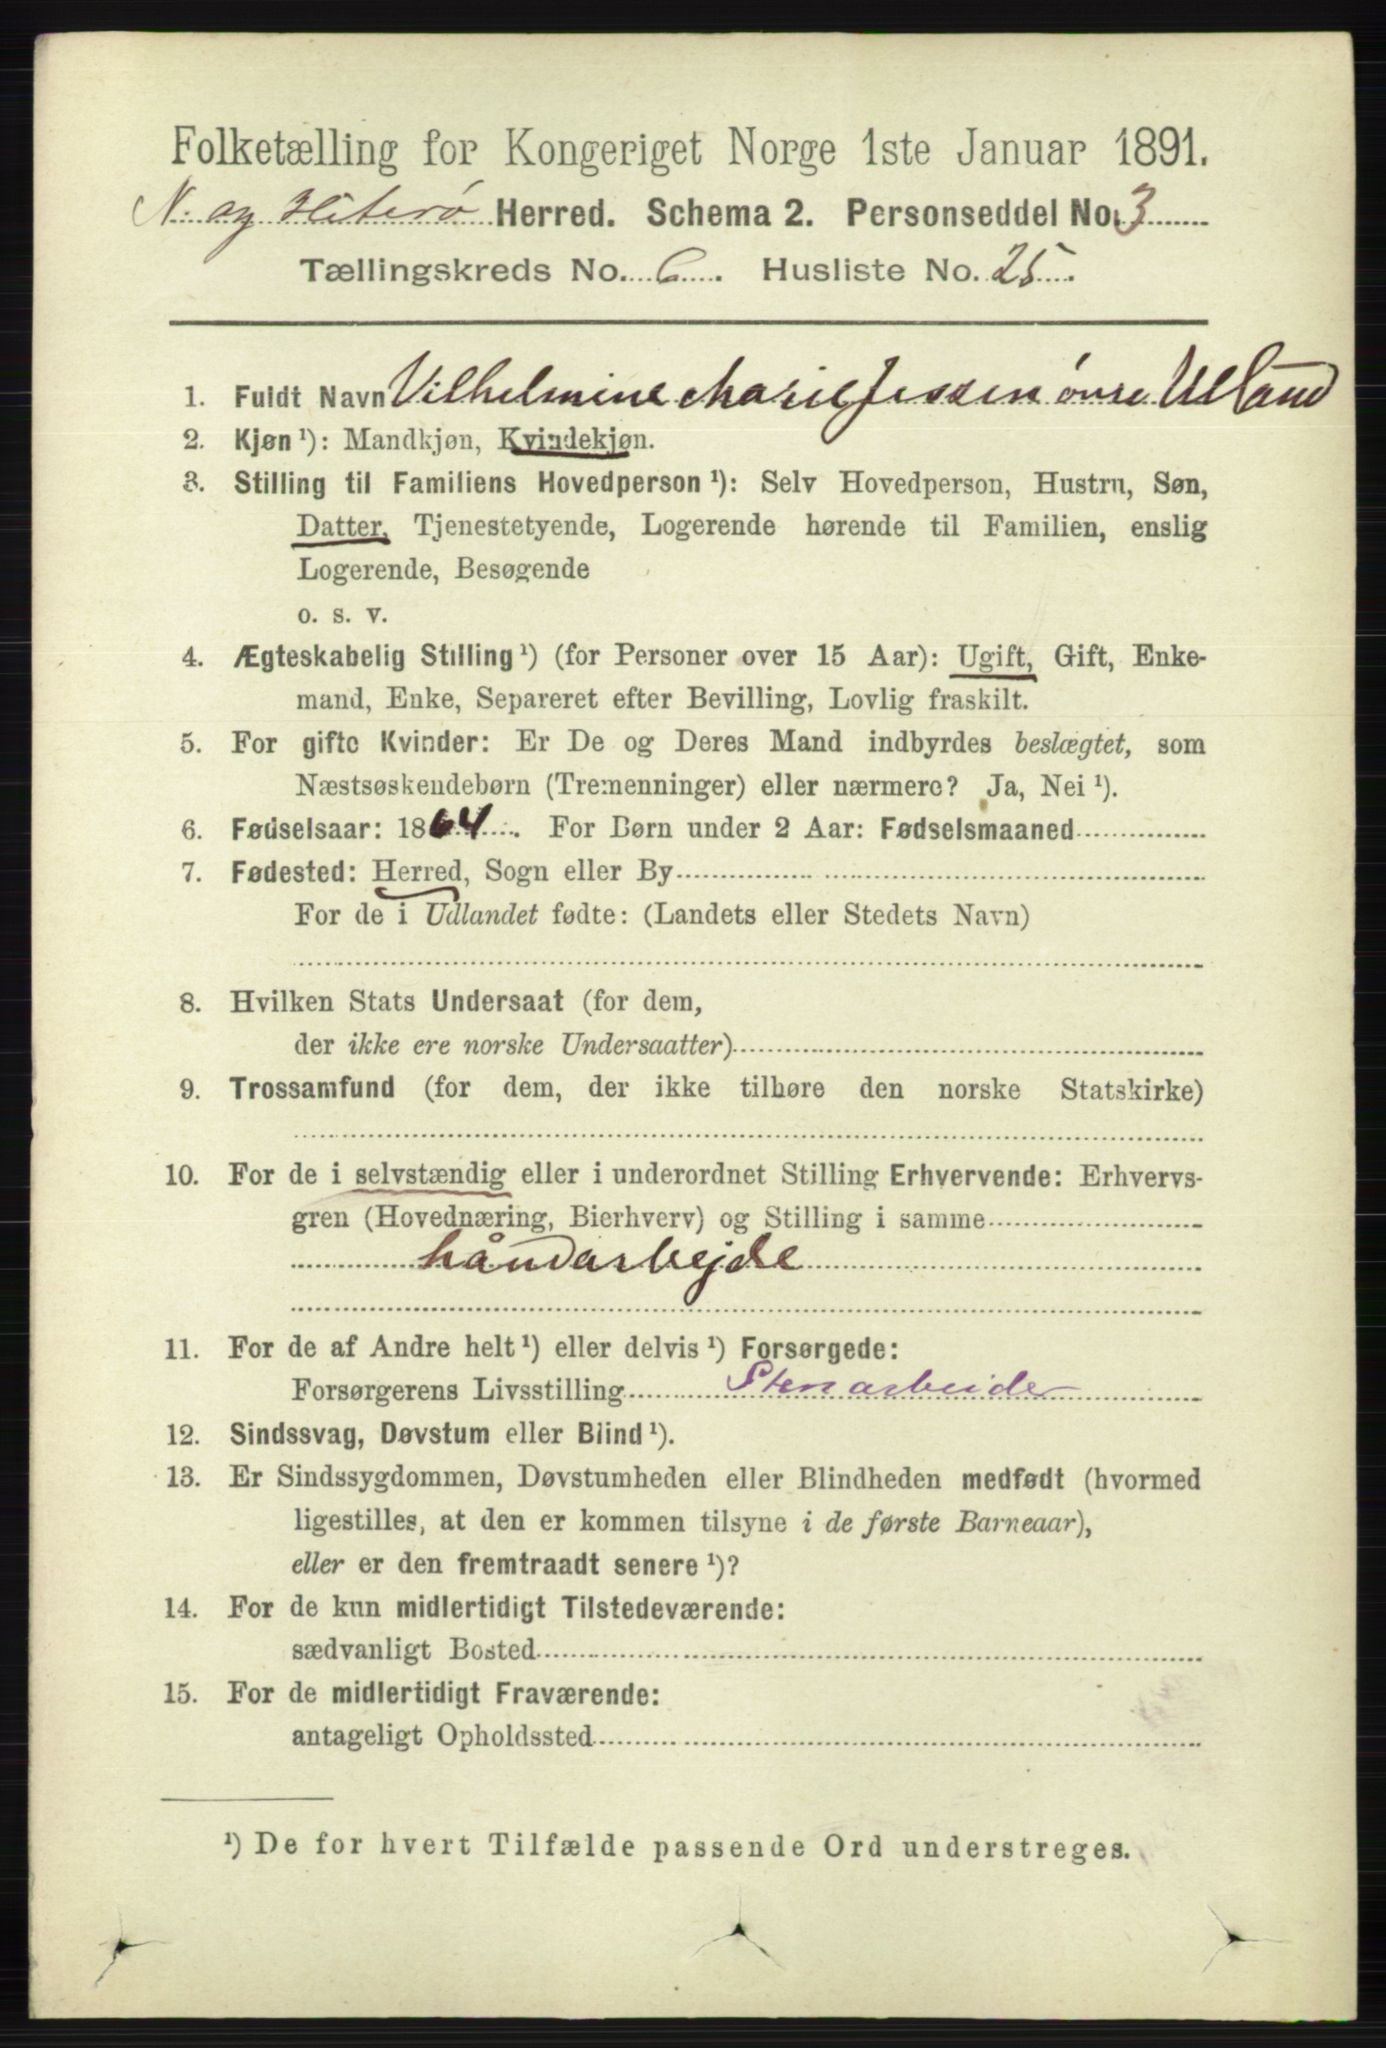 Folketælling for Kongeriget Norge 1ste Januar 1891.
N. og Hiterø Herred. Schema 2. Personseddel No. 3
Tællingskreds No. 6. Husliste No. 25.
1. Fuldt Navn Vilhelmine Marie Jessen øvre Ueland
2. Kjøn ¹): Mandkjøn, Kvindekjøn.
3. Stilling til Familiens Hovedperson ¹): Selv Hovedperson, Hustru, Søn,
Datter, Tjenestetyende, Logerende hørende til Familien, enslig
Logerende, Besøgende
o. s. v.
4. Ægteskabelig Stilling ¹) (for Personer over 15 Aar): Ugift, Gift, Enke-
mand, Enke, Separeret efter Bevilling, Lovlig fraskilt.
5. For gifte Kvinder: Er De og Deres Mand indbyrdes beslægtet, som
Næstsøskendebørn (Tremenninger) eller nærmere? Ja, Nei ¹).
6. Fødselsaar: 1864. For Børn under 2 Aar: Fødselsmaaned
7. Fødested: Herred, Sogn eller By
For de i Udlandet fødte: (Landets eller Stedets Navn)
8. Hvilken Stats Undersaat (for dem,
der ikke ere norske Undersaatter)
9. Trossamfund (for dem, der ikke tilhøre den norske Statskirke)
10. For de i selvstændig eller i underordnet Stilling Erhvervende: Erhvervs-
gren (Hovednæring, Bierhverv) og Stilling i samme
håndarbejde
11. For de af Andre helt ¹) eller delvis ¹) Forsørgede:
Forsørgerens Livsstilling Stenarbeider
12. Sindssvag, Døvstum eller Blind ¹).
13. Er Sindssygdommen, Døvstumheden eller Blindheden medfødt (hvormed
ligestilles, at den er kommen tilsyne i de første Barneaar),
eller er den fremtraadt senere ¹)?
14. For de kun midlertidigt Tilstedeværende:
sædvanligt Bosted
15. For de midlertidigt Fraværende:
antageligt Opholdssted
¹) De for hvert Tilfælde passende Ord understreges.